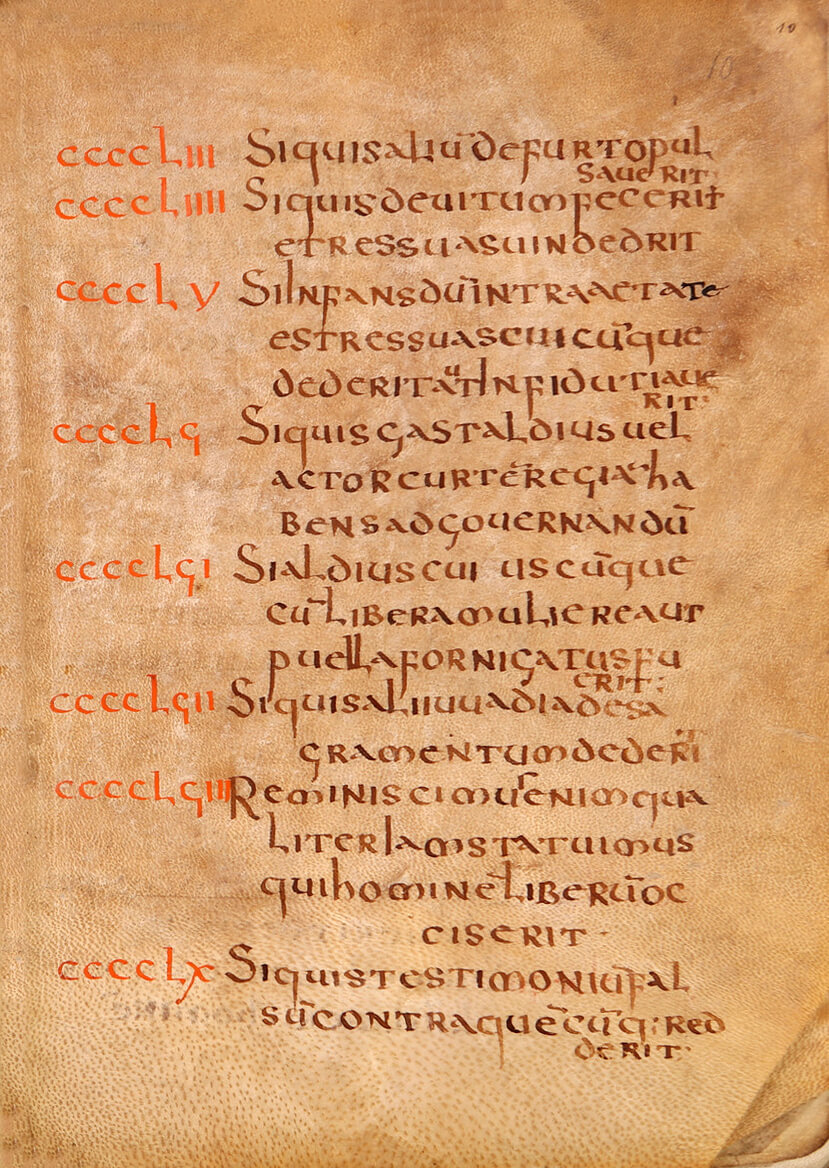 10
10
ccccLIII Si quis aliū de furto pul
saverit:
ccccLIIII Si quis devitum fecerit
et res suas uindedrit
ccccLV Si infans dū intra aetate
est res suas cuicūque
dederit aut infidutiave
rit:
ccccLϛ Si quis gastaldius vel
actor curtē regiā ha
bens ad governandū
ccccLϛI Si aldius cuiuscūque
cū libera muliere aut
puella fornigatus fu
erit:
ccccLϛII Si quis alii uuadia de sa
gramentum dederit
ccccLϛIII Reminiscimur enim qua
liter iam statuimus
qui hominē liberū oc
ciserit ·
ccccLX Si quis testimoniū fal
sū contra quēcūq: red
derit·